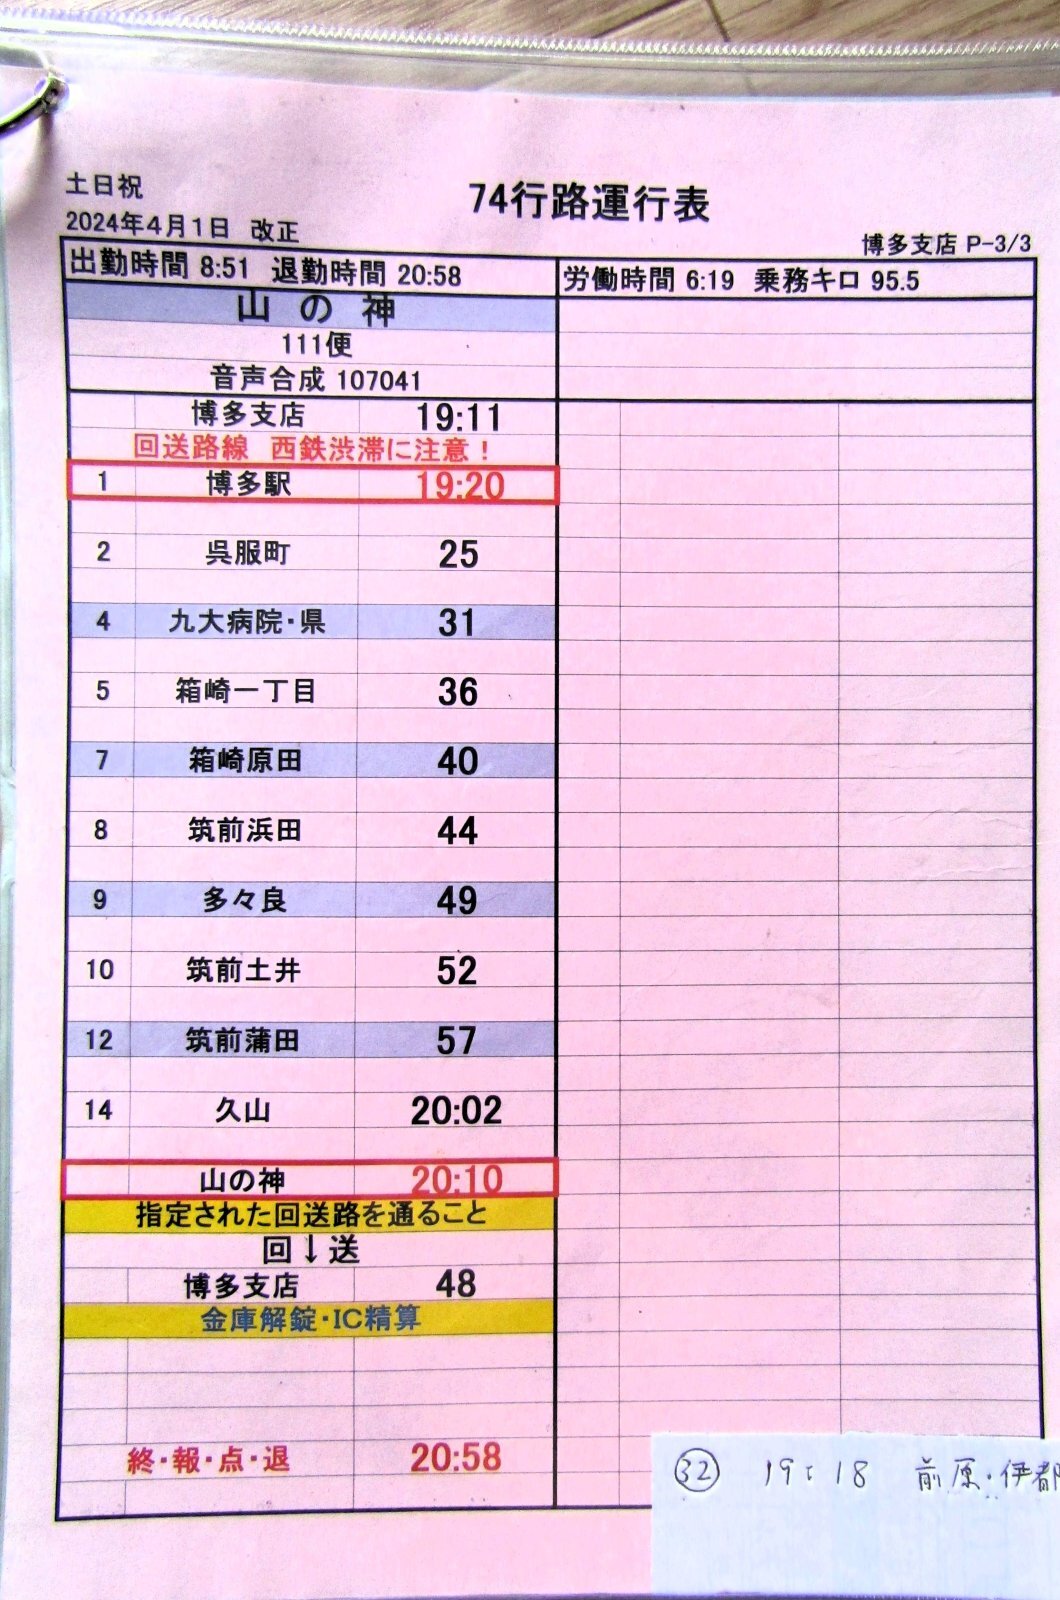 土日祝
74行路運行表
2024年4月1日 改正
博多支店 P-3/3
出勤時間 8:51 退勤時間 20:58
労働時間 6:19 乗務キロ 95.5
山の神
111便
音声合成 107041
博多支店 19:11
回送路線 西鉄渋滞に注意！
1 博多駅 19:20
2 呉服町 25
4 九大病院・県 31
5 箱崎一丁目 36
7 箱崎原田 40
8 筑前浜田 44
9 多々良 49
10 筑前土井 52
12 筑前蒲田 57
14 久山 20:02
山の神 20:10
指定された回送路を通ること
回↓送
博多支店 48
金庫解錠・IC精算
終・報・点・退 20:58
㉜ 19:18 前原・伊都